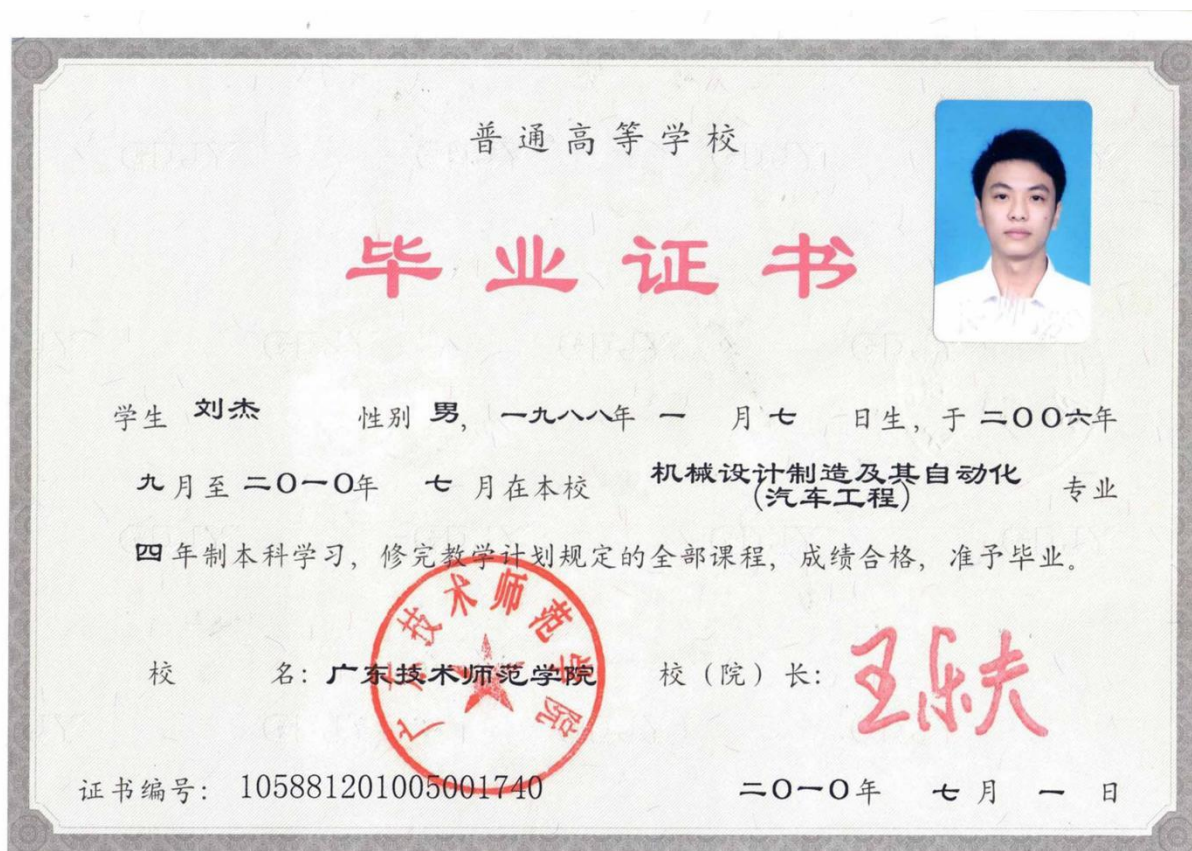 普通高等学校
毕业证书
学生 刘杰 性别 男, 一九八八年 一 月 七 日生, 于 二〇〇六年
九 月至 二〇一〇年 七 月在本校 机械设计制造及其自动化 专业
(汽车工程)
四 年制本科学习, 修完教学计划规定的全部课程, 成绩合格, 准予毕业。
校 名: 广东技术师范学院 校(院)长: 王乐夫
广东技术师范学院
证书编号: 105881201005001740 二〇一〇年 七 月 一 日